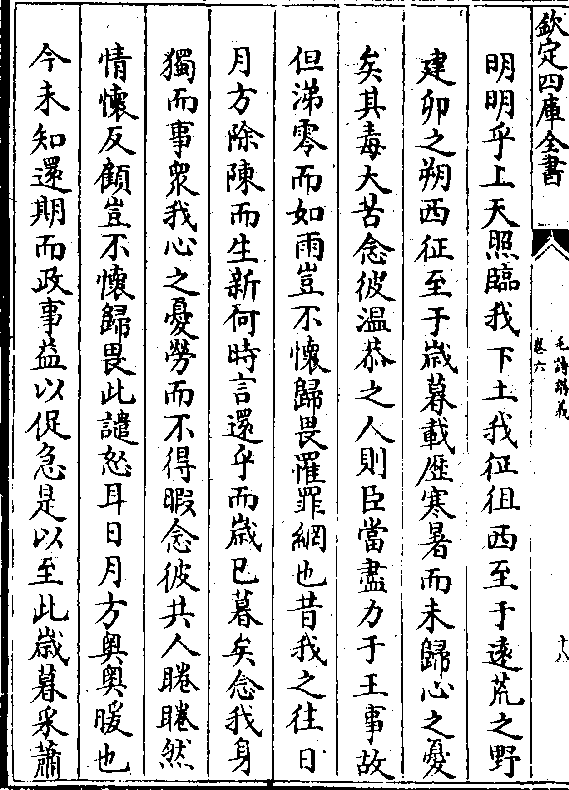 欽定四庫全書
毛詩講義
卷六
十八
明明乎上天照臨我下土我征徂西至于遠荒之野
建卯之朔西征至于歲暮載歷寒暑而未歸心之憂
矣其毒大苦念彼温恭之人則臣當盡力于王事故
但涕零而如雨豈不懷歸畏罹罪網也昔我之往日
月方除陳而生新何時言還乎而歳已暮矣念我身
獨而事衆我心之憂勞而不得暇念彼共人睠睠然
情懷反顧豈不懷歸畏此譴怒耳日月方奥奥暖也
今未知還期而政事益以促急是以至此歳暮采蕭